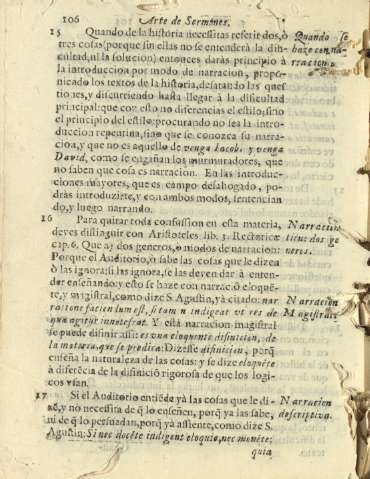 106 Arte de Sermones.
15 Quando de la historia necessitas referir dos, ò
tres cosas (porque sin ellas no se entenderà la difi-
cultad, ni la solucion) entonces daràs principio à
la introduccion por modo de narracion, propo-
niendo los textos de la historia, desatando las ques
tiones, y discurriendo hasta llegar à la dificultad
principal: que con esto no diferencias el estilo, sino
el principio del estilo: procurando no sea la intro-
duccion repentina, sino que se conozca su narra-
cion, y que no es aquello de venga Iacob, y venga
David, como se engañan los murmuradores, que
no saben que cosa es narracion. En las introduc-
ciones mayores, que es campo desahogado, po-
dràs introduzirte, y con ambos modos, sentencian
do, y luego narrando.
Quando
haze con na-
rracion
16 Para quitar toda confussion en esta materia,
deves distinguir con Aristoteles lib. 3. Rectoricæ
cap. 6. Que ay dos generos, ò modos de narracion:
Porque el Auditorio, ò sabe las cosas que le dizen
ò las ignora: si las ignora, se las deven dar à enten-
der enseñando: y esto se haze con narració eloquë-
te, y magistral, como dize S. Agustin, yà citado: nar
ratione faciendum est, si tamen indigeat ut res de
qua agitur innotescat. Y està narracion magistral
se puede difinir assi: es una eloquente difinicion, de
la materia, que se predica: Dizese difinicion, porq̃
enseña la naturaleza de las cosas: y se dize eloquëte
à diferëcia de la difinició rigorosa de que los logi-
cos vsan.
Narracion
tiene dos ge
neros.
Narracion
Magistral
17 Si el Auditorio entiëde yà las cosas que le di-
zë, y no necessita de q̃ lo enseñen, porq̃ ya las sabe,
ni de q̃ lo persuadan, porq̃ yà assiente, como dize S.
Agustin: Si nec docëte indigent eloquio, nec monëte;
quia
Narracion
descriptiva.